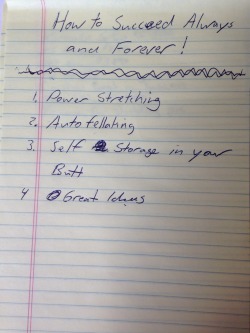 How to Succeed Always
and Forever!
1. Power Stretching
2. Autofellating
3. Self Storage in your
Butt
4 Great Ideas